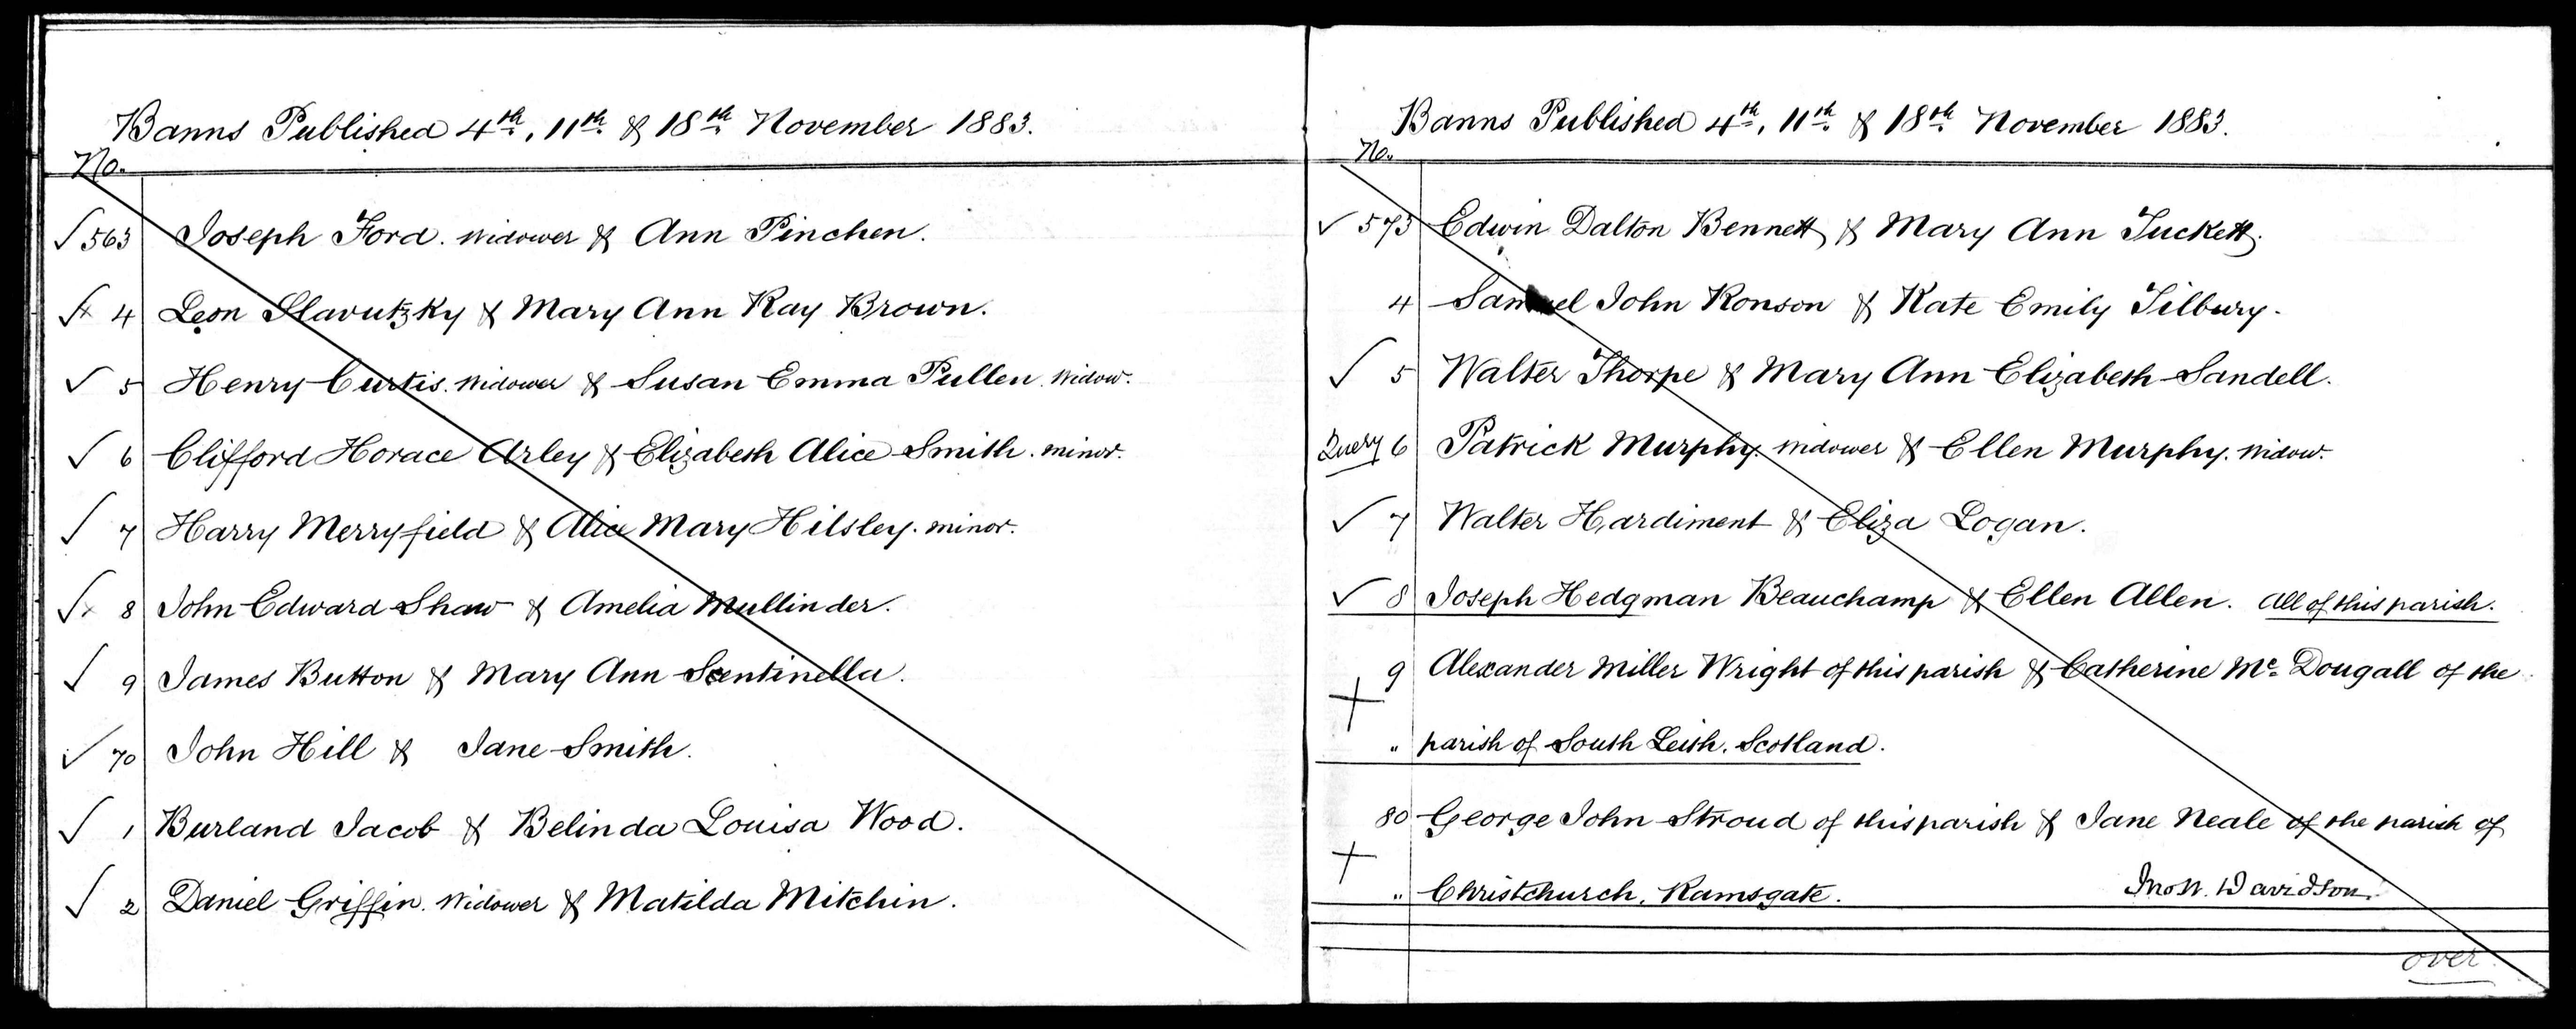 Banns Published 4th, 11th & 18th November 1883.
No.
√ 563 Joseph Ford. Widower & Ann Pinchen.
√x 4 Leon Slavutzky & Mary Ann Kay Brown.
√ 5 Henry Curtis. Widower & Susan Emma Pullen. Widow.
√ 6 Clifford Horace Arley & Elizabeth Alice Smith. minor.
√ 7 Harry Merryfield & Alice Mary Hilsley. minor.
√x 8 John Edward Shaw & Amelia Mullinder.
√ 9 James Button & Mary Ann Scentinella.
√ 70 John Hill & Jane Smith.
√ 1 Burland Jacob & Belinda Louisa Wood.
√ 2 Daniel Griffin. Widower & Matilda Mitchin.
Banns Published 4th, 11th & 18th November 1883.
No.
√ 573 Edwin Dalton Bennett & Mary Ann Tuckett.
4 Samuel John Ronson & Kate Emily Tilbury.
√ 5 Walter Thorpe & Mary Ann Elizabeth Sandell.
Query 6 Patrick Murphy. Widower & Ellen Murphy. Widow.
√ 7 Walter Hardiment & Eliza Logan.
√ 8 Joseph Hedgman Beauchamp & Ellen Allen. All of this parish.
+ 9 Alexander Miller Wright of this parish & Catherine Mc Dougall of the
" parish of South Leith. Scotland.
+ 80 George John Stroud of this parish & Jane Neale of the parish of
" Christchurch, Ramsgate. Jno W. Davidson.
over